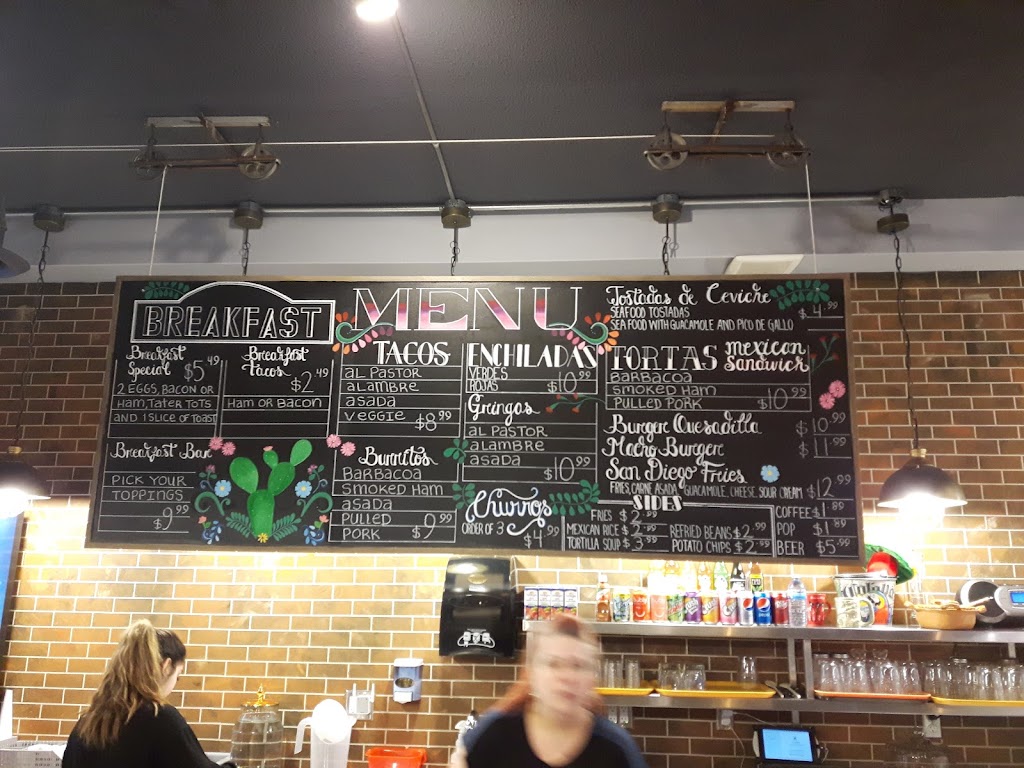 BREAKFAST
Breakfast
Special $5.49
2 EGGS, BACON OR
HAM, TATER TOTS
AND 1 SLICE OF TOAST
Breakfast
Tacos
$2.49
HAM OR BACON
Breakfast Bar
PICK YOUR
TOPPINGS
$9.99
MENU
TACOS
AL PASTOR
ALAMBRE
ASADA
VEGGIE $8.99
Burritos
BARBACOA
SMOKED HAM
ASADA
PULLED
PORK $9.99
ENCHILADAS
VERDES
ROJAS $10.99
Gringas
AL PASTOR
ALAMBRE
ASADA
$10.99
Churros
ORDER OF 3 $4.99
Tostadas de Ceviche
SEAFOOD TOSTADAS $4.99
SEA FOOD WITH GUACAMOLE AND PICO DE GALLO
TORTAS Mexican Sandwich
BARBACOA
SMOKED HAM
PULLED PORK $10.99
Burger Quesadilla $10.99
Macho Burger $11.99
San Diego Fries
FRIES, CARNE ASADA, GUACAMOLE, CHEESE, SOUR CREAM $12.99
SIDES
FRIES $2.99
MEXICAN RICE $2.99
TORTILLA SOUP $3.99
REFRIED BEANS $2.99
POTATO CHIPS $2.99
COFFEE $1.89
POP $1.89
BEER $5.99